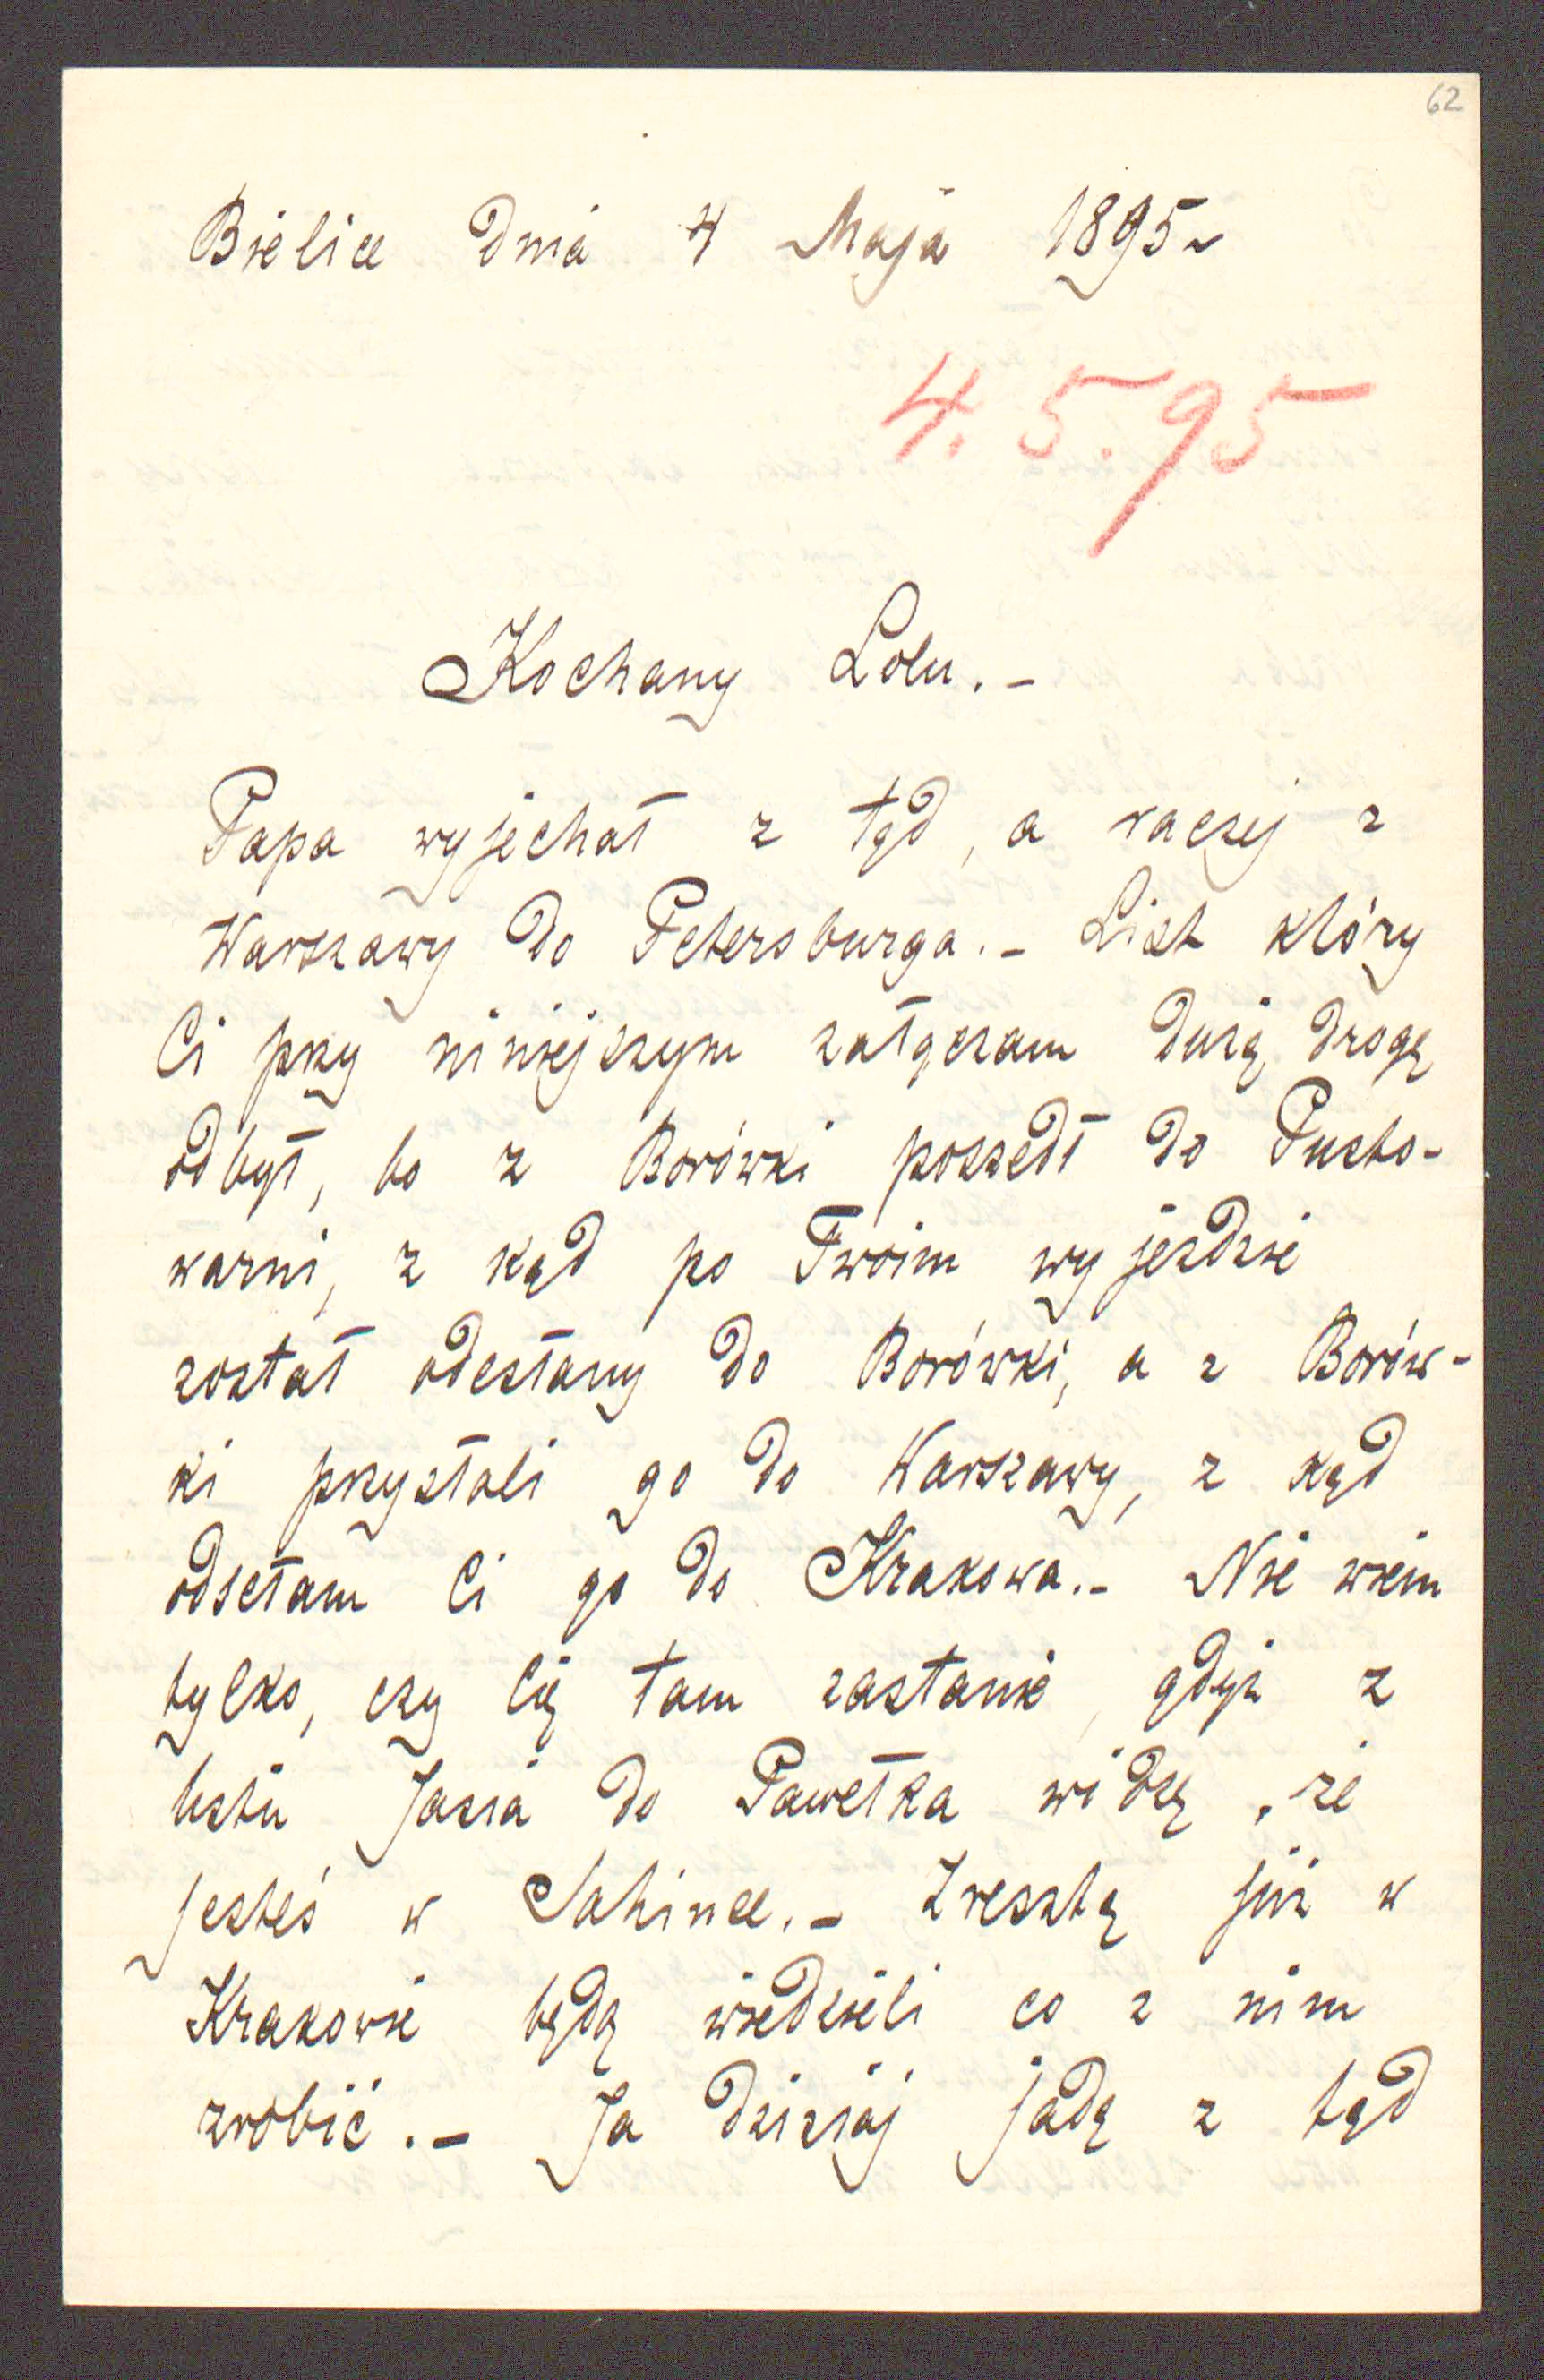 62
Bielice Dnia 4 Maja 1895
4. 5. 95
Kochany Lolu.-
Papa wyjechał z tąd, a raczej z
Warszawy do Petersburga.- List który
Ci przy niniejszym załączam dużą drogę
odbył, bo z Borówki poszedł do Pusto-
warni, z kąd po Twoim wyjeździe
został odesłany do Borówki, a z Borów-
ki przysłali go do Warszawy, z kąd
odsełam Ci go do Krakowa.- Nie wiem
tylko, czy Cię tam zastanie, gdyż z
listu Jasia do Pawełka widzę, że
jesteś w Jahince.- Zresztą już w
Krakowie będą wiedzieli co z nim
zrobić.- Ja dzisiaj jadę z tąd